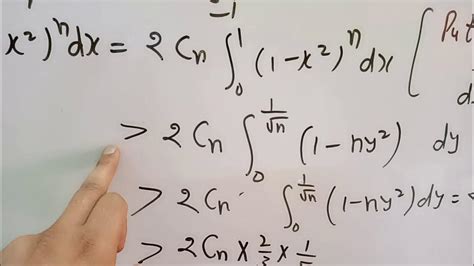 -1
x²)ⁿdx = 2 Cn ∫₀¹ (1-x²)ⁿ dx [ Put
> 2 Cn ∫₀^(1/√n) (1-ny²) dy
> 2 Cn ∫₀^(1/√n) (1-ny²) dy =
> 2Cn × 2/3 × 1/√